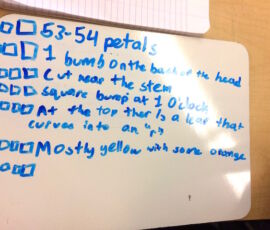 53-54 petals
1 bumb on the back of the head
Cut near the stem
square bump at 1 O'clock
At the top ther is a leaf that
curves into an "r"
Mostly yellow with some orange